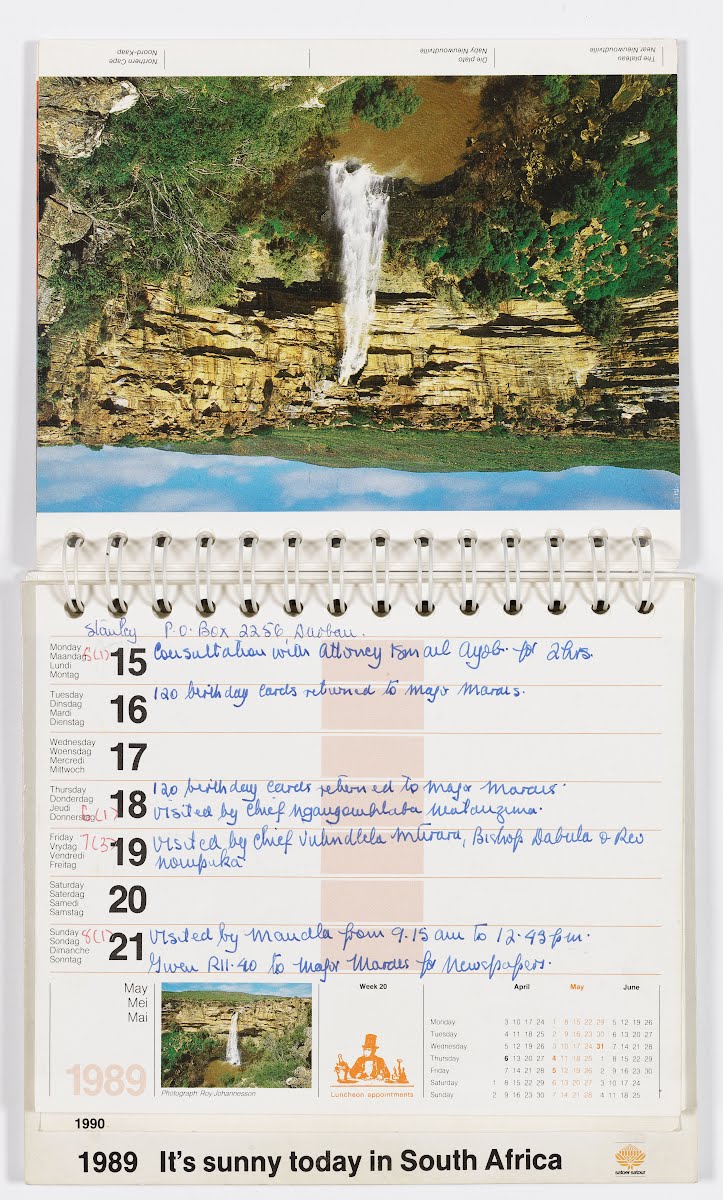 Northern Cape
Noord-Kaap
Naby Nieuwoudtville
Die plato
Near Nieuwoudtville
The plateau
Stanley P.O. Box 2256, Durban.
Monday
Maandag 5(1)
Lundi
Montag
15 Consultation with Attorney Ismail Ayob for 2hrs.
Tuesday
Dinsdag
Mardi
Dienstag
16 120 birthday cards returned to Major Marais.
Wednesday
Woensdag
Mercredi
Mittwoch
17
Thursday
Donderdag
Jeudi
Donnerstag 6(1)
18 120 birthday cards returned to Major Marais.
Visited by Chief Ngangomhlaba Matanzima.
Friday
Vrydag 7(3)
Vendredi
Freitag
19 Visited by Chief Mtirara, Bishop Dabula & Rev
Nompuka
Saturday
Saterdag
Samedi
Samstag
20
Sunday
Sondag 8(1)
Dimanche
Sonntag
21 Visited by Mandla from 9.15 am to 12.43 pm.
Given R11.40 to Major Marais for Newspapers.
May
Mei
Mai
1989
Photograph: Roy Johannesson
Week 20
Luncheon appointments
April May June
Monday 3 10 17 24 1 8 15 22 29 5 12 19 26
Tuesday 4 11 18 25 2 9 16 23 30 6 13 20 27
Wednesday 5 12 19 26 3 10 17 24 31 7 14 21 28
Thursday 6 13 20 27 4 11 18 25 1 8 15 22 29
Friday 7 14 21 28 5 12 19 26 2 9 16 23 30
Saturday 1 8 15 22 29 6 13 20 27 3 10 17 24
Sunday 2 9 16 23 30 7 14 21 28 4 11 18 25
1990
1989 It's sunny today in South Africa
satoer satour